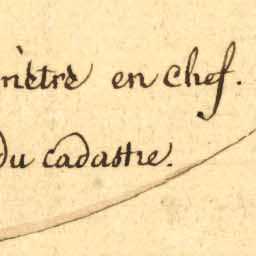 mètre en chef.
du cadastre.